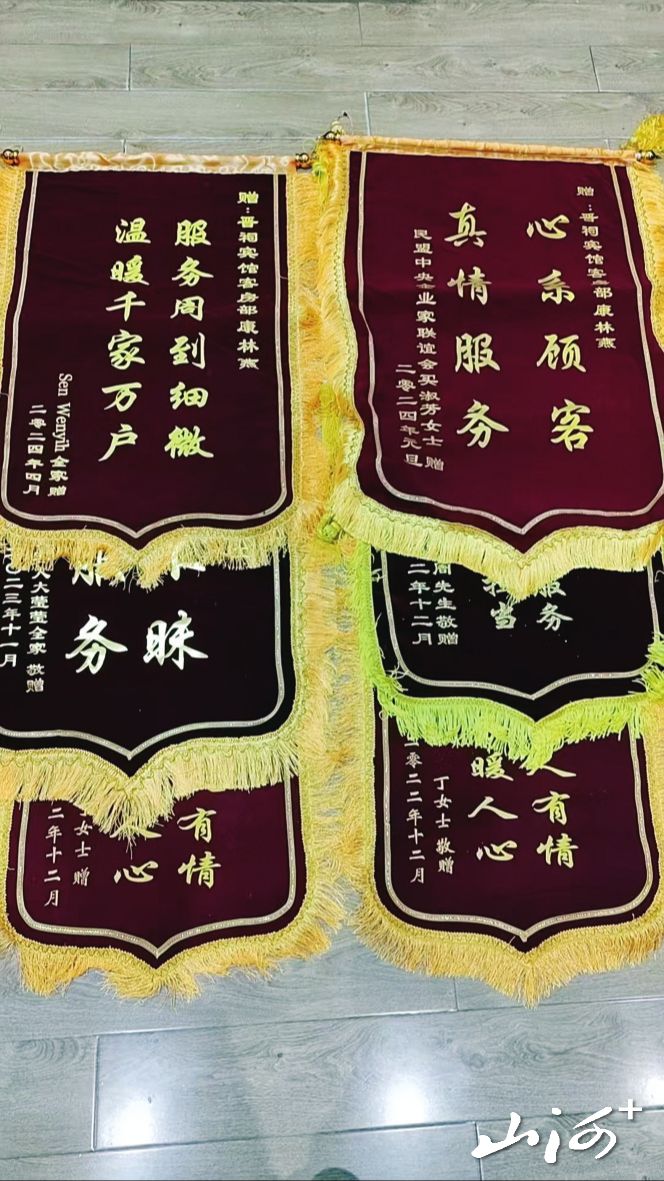 赠：晋祠宾馆客房部康林燕
服务周到细微
温暖千家万户
Sen Wenyih全家赠
二零二四年四月
赠：晋祠宾馆客部康林燕
心系顾客
真情服务
民盟中央企业家联谊会买淑芳女士 赠
二零二四年元旦
昧
服务
大莹莹全家 敬赠
二三年十一月
服务
当
周先生敬赠
二年十二月
有情
心
女士 赠
二年十二月
人有情
暖人心
丁女士 敬赠
二零二二年十二月
山河+